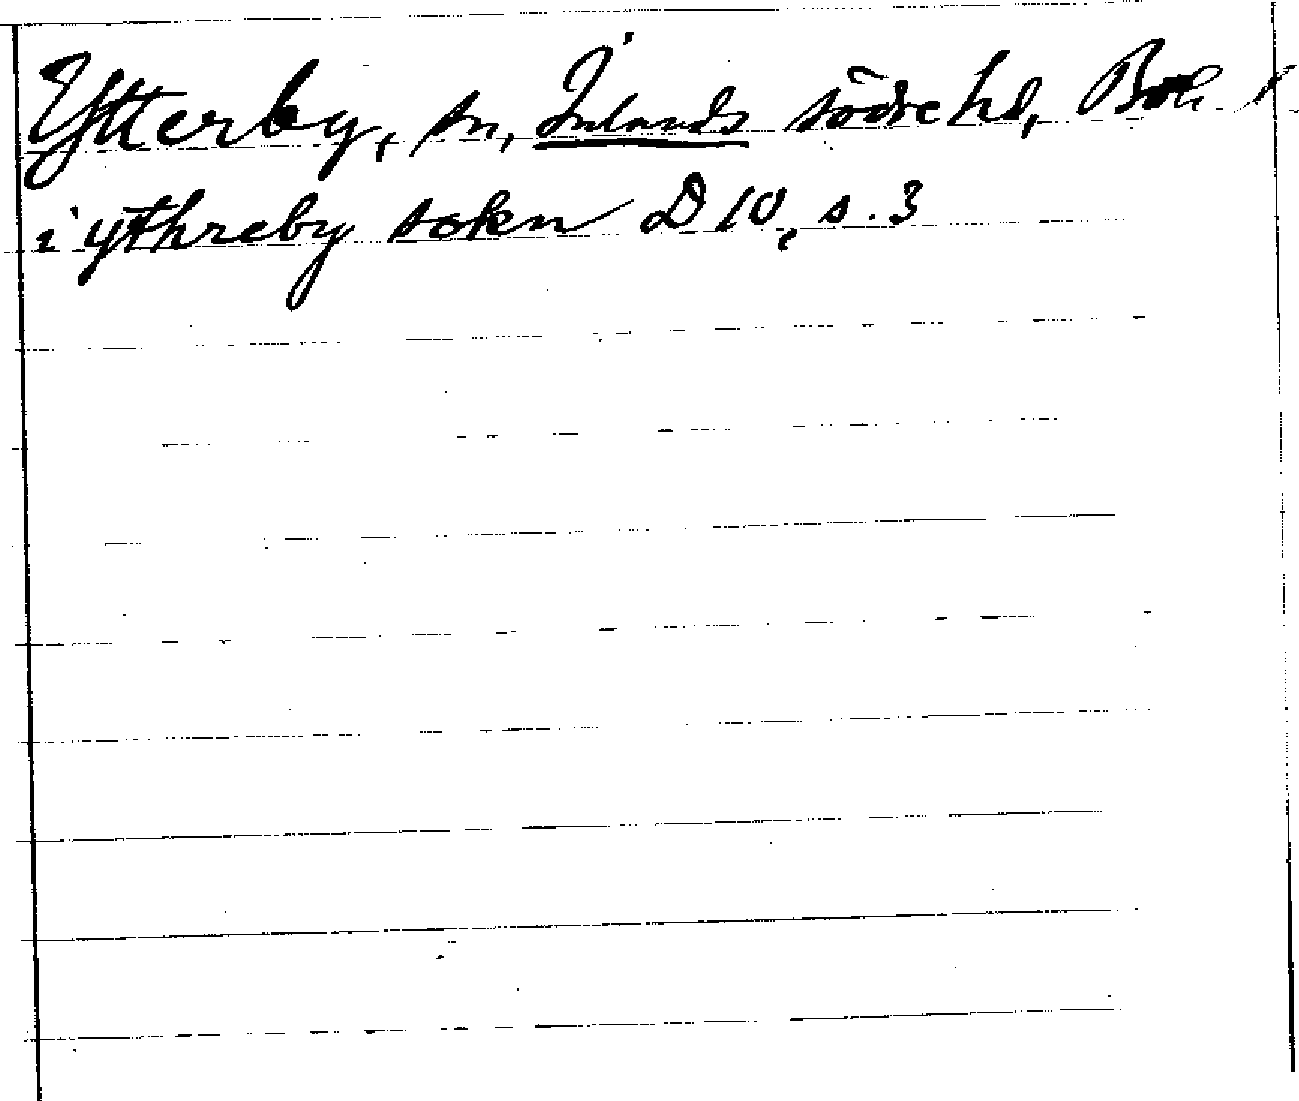 Ytterby, sn, Inlands södre hd, Boh. l
i ythreby sokn D 10, s. 3